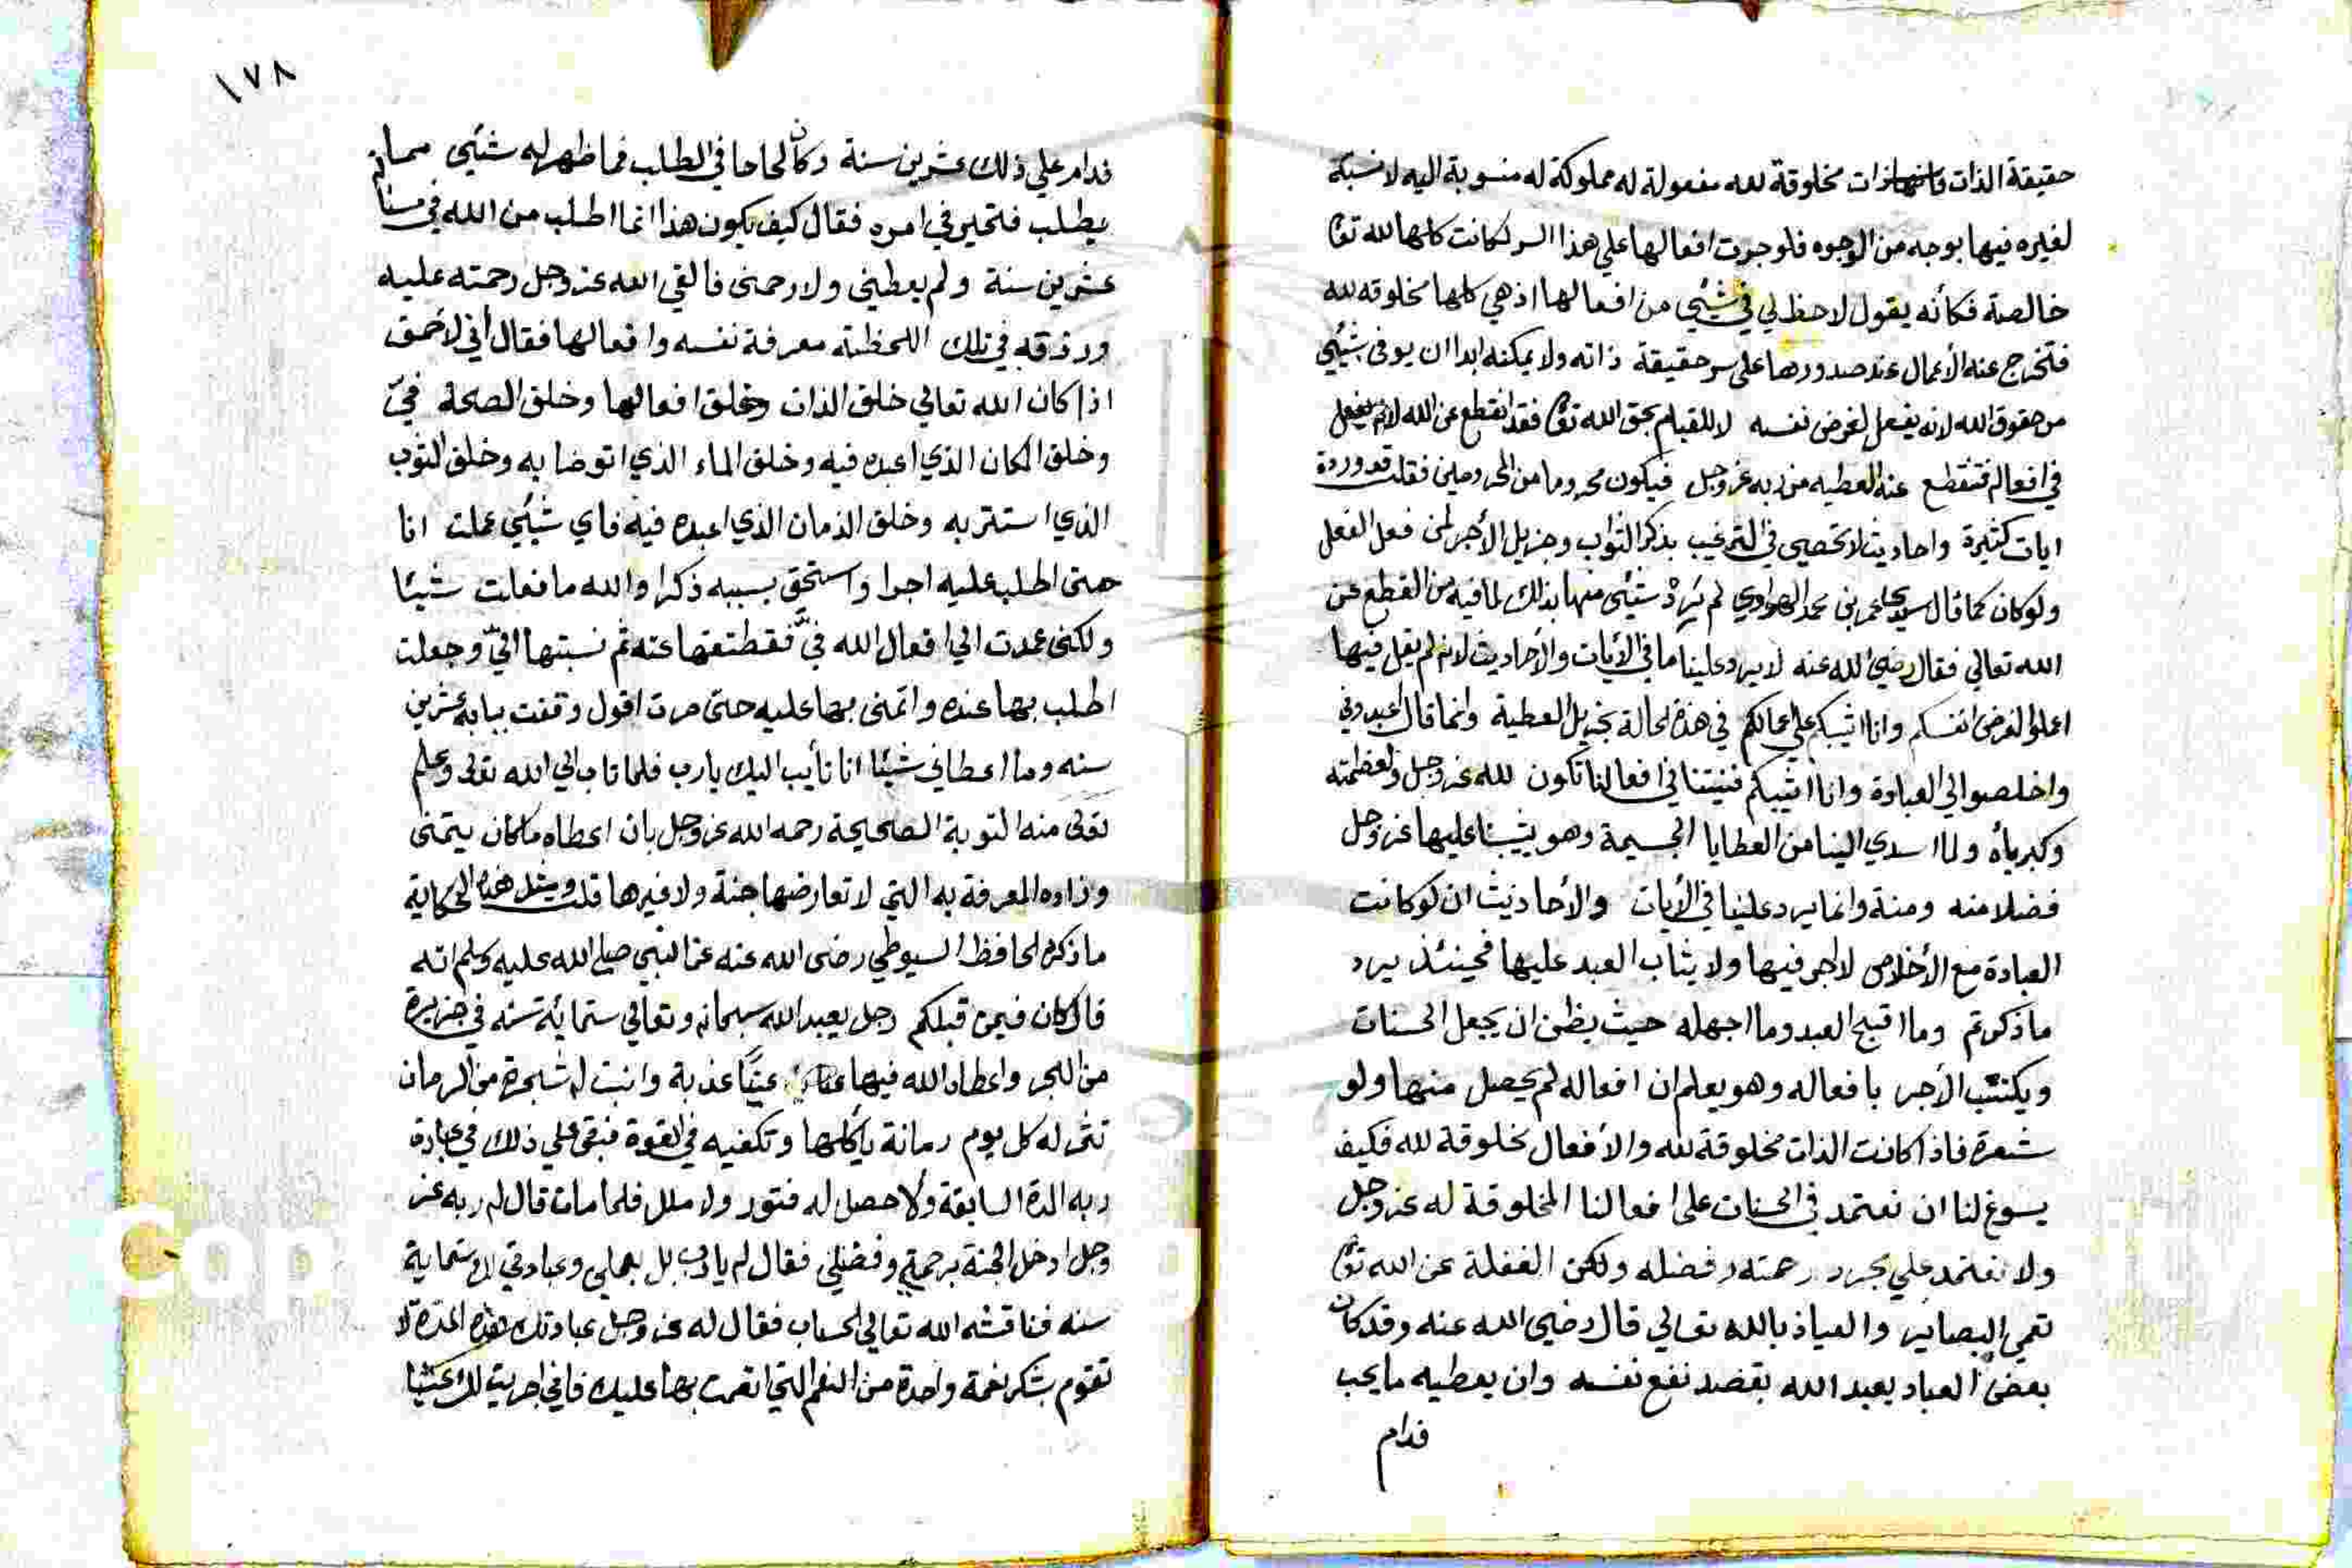 حقيقة الذات فانها ذات مخلوقة لله مفعولة له مملوكة له منسوبة اليه لا نسبة
لغيره فيها بوجه من الوجوه فلو جرت افعالها علي هذا السر لكانت كلها لله تعا
خالصة فكأنه يقول لا حظ لي في شيئي من افعالها اذ هي كلها مخلوقه لله
فتخرج عنه الأعمال عند صدورها على سر حقيقة ذاته ولا يمكنه ابدا ان يوفى بشيئي
من حقوق الله لانه يفعل لغرض نفسه لا للقيام بحق الله تعا فقد انقطع عن الله لانه يفعل
في افعاله فتنقطع عنه العطيه من ربه عز وجل فيكون محروما من المحرومين فقلت قد وردة
ايات كثيرة واحاديث لا تحصى في الترغيب بذكر الثواب وجزيل الأجر لمن فعل الفعل
ولو كان كما قال سيدي عمر بن محمد الهواوي لم يَرِدْ شيئي منها بذلك لما فيه من القطع عن
الله تعالي فقال رضي الله عنه لا يرد علينا ما في الأيات والأحاديث لانه لم يقل فيها
اعملوا لغرض انفسكم وانا اثيبكم علي اعمالكم في هذه الحالة بجزيل العطية وانما قال اعبدوني
واخلصوا لي العبادة وانا اثيبكم فنيتنا في افعالنا تكون لله عز وجل ولعظمته
وكبريأه ولما اسدي الينا من العطايا الجسيمة وهو يثيبنا عليها عز وجل
فضلا منه ومنة وانما يرد علينا في الأيات والأحاديث ان لو كانت
العبادة مع الأخلاص لا اجر فيها ولا يثاب العبد عليها فحينئذ يرد
ما ذكرتم وما اقبح العبد وما اجهله حيث يظن ان يجعل الحسنات
ويكتسب الأجر بافعاله وهو يعلم ان افعاله لم يحصل منها ولو
شعرة فاذا كانت الذات مخلوقة لله والأفعال مخلوقة لله فكيف
يسوغ لنا ان نعتمد في الحسنات على افعالنا المخلوقة له عز وجل
ولا نعتمد علي مجرد رحمته وفضله ولكن الغفلة عن الله تعا
تعمي البصاير والعياذ بالله تعالي قال رضي الله عنه وقد كان
بعض العباد يعبد الله بقصد نفع نفسه وان يعطيه ما يحب
فدام
١٧٨
فدام علي ذلك عشرين سنة وكان لحاحا في الطلب فما ظهر له شيئي مما
يطلب فتحير في امره فقال كيف يكون هذا انما اطلب من الله في
عشرين سنة ولم يعطيني ولا رحمني فالقي الله عز وجل رحمته عليه
ورزقه في تلك اللحظة معرفة نفسه وافعالها فقال أني لأحمق
اذا كان الله تعالي خلق الذات وخلق افعالها وخلق الصحة فيّ
وخلق المكان الذي اعبده فيه وخلق الماء الذي اتوضا به وخلق الثوب
الذي استتر به وخلق الزمان الذي اعبده فيه فاي شيئي عملت انا
حتى اطلب عليه اجرا واستحق بسببه ذكرا والله ما فعلت شيئا
ولكني عمدت الي افعال الله فيّ فقطعتها عنه ثم نسبتها اليّ وجعلت
اطلب بها عنده واتمنى بها عليه حتى صرت اقول وقفت ببابه عشرين
سنه وما اعطاني شيئا انا تأيب اليك يا رب فلما تاب الي الله تعالى وعلم
تعالى منه التوبة الصحيحة رحمه الله عز وجل بان اعطاه ما كان يتمنى
وزاده المعرفة به التي لا تعارضها جنة ولا غيرها قلت ومثل هذه الحكاية
ما ذكره الحافظ السيوطي رضى الله عنه عن النبي صلي الله عليه وسلم انه
قال كان فيمن قبلكم رجل يعبد الله سبحانه وتعالي ستمائة سنه في جزيرة
من البحر واعطاه الله فيها عينًا عذبة وانبت له شجرة من الرمان
تثمر له كل يوم رمانة يأكلها وتكفيه في القوة فبقى علي ذلك في عبادة
ربه المدة السابقة ولا حصل له فتور ولا ملل فلما مات قال له ربه عز
وجل ادخل الجنة برحمتي وفضلي فقال له يا رب بل بعملي وعبادتي لك ستماية
سنه فناقشه الله تعالي الحساب فقال له عز وجل عبادتك هذه المدة لا
تقوم بشكر نعمة واحدة من النعم التي انعمت بها عليك فاني اجريت لك عينا